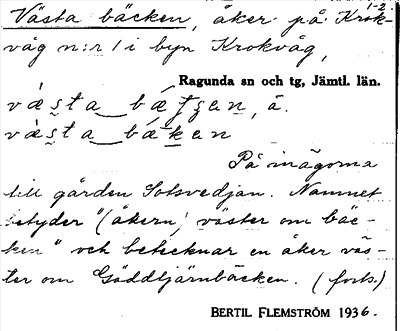 1-2.
Västa bäcken, åker på Krok-
våg n:r 1 i byn Krokvåg,
Ragunda sn och tg, Jämtl. län.
västa bä
västa bäken
På inägorna
till gården Solsvedjan. Namnet
betyder "(åkern) väster om bäc-
ken" och betecknar en åker väs-
ter om Gäddtjärnbäcken. (forts.)
BERTIL FLEMSTRÖM 1936.